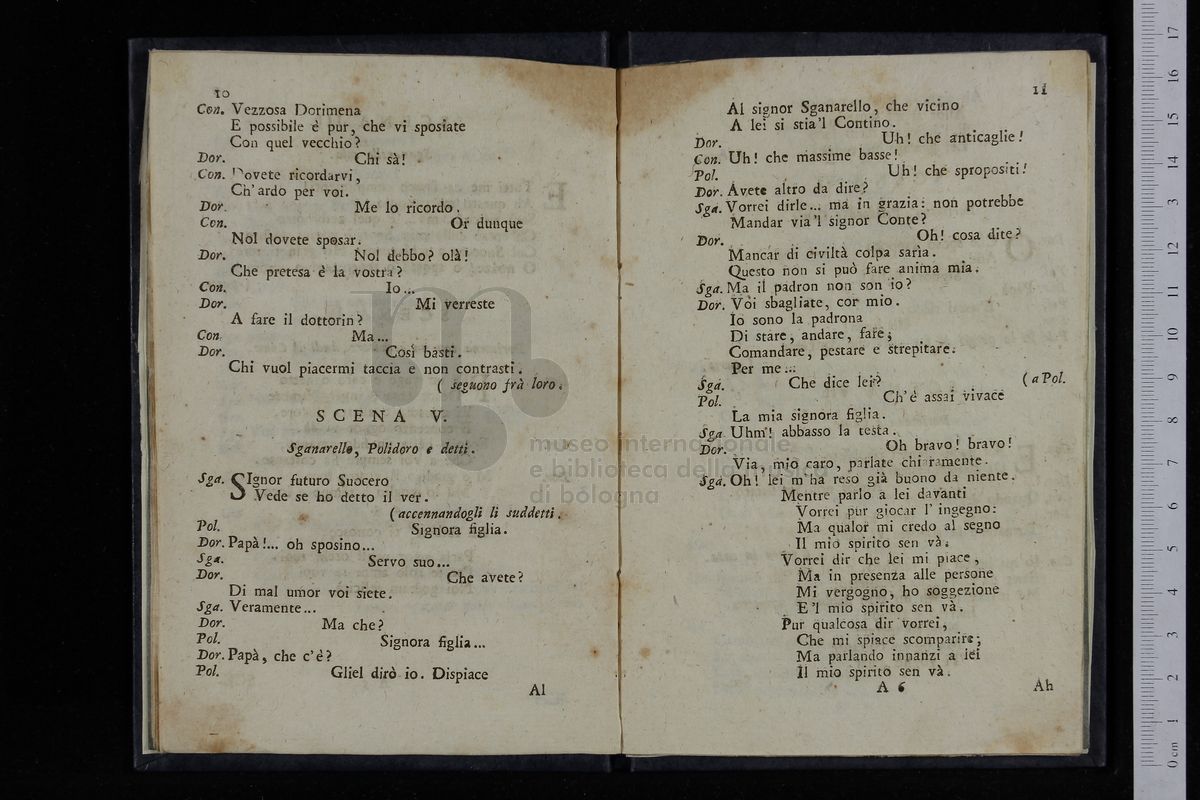 10
Con. Vezzosa Dorimena
E possibile è pur, che vi sposiate
Con quel vecchio?
Dor. Chi sà!
Con. Dovete ricordarvi,
Ch'ardo per voi.
Dor. Me lo ricordo.
Con. Or dunque
Nol dovete sposar.
Dor. Nol debbo? olà!
Che pretesa è la vostra?
Con. Io...
Dor. Mi verreste
A fare il dottorin?
Con. Ma...
Dor. Così basti.
Chi vuol piacermi taccia e non contrasti.
( seguono frà loro.
SCENA V.
Sganarello, Polidoro e detti.
Sga. SIgnor futuro Suocero
Vede se ho detto il ver.
(accennandogli li suddetti.
Pol. Signora figlia.
Dor. Papà!... oh sposino...
Sga. Servo suo...
Dor. Che avete?
Di mal umor voi siete.
Sga. Veramente...
Dor. Ma che?
Pol. Signora figlia...
Dor. Papà, che c'è?
Pol. Gliel dirò io. Dispiace
Al
11
Al signor Sganarello, che vicino
A lei si stia'l Contino.
Dor. Uh! che anticaglie!
Con. Uh! che massime basse!
Pol. Uh! che spropositi!
Dor. Avete altro da dire?
Sga. Vorrei dirle... ma in grazia: non potrebbe
Mandar via'l signor Conte?
Dor. Oh! cosa dite?
Mancar di civiltà colpa sarìa.
Questo non si può fare anima mia.
Sga. Ma il padron non son io?
Dor. Voi sbagliate, cor mio.
Io sono la padrona
Di stare, andare, fare;
Comandare, pestare e strepitare.
Per me...
Sga. Che dice lei? (a Pol.
Pol. Ch'è assai vivace
La mia signora figlia.
Sga Uhm! abbasso la testa.
Dor. Oh bravo! bravo!
Via, mio caro, parlate chiaramente.
Sga. Oh! lei m'ha reso già buono da niente.
Mentre parlo a lei davanti
Vorrei pur giocar l'ingegno:
Ma qualor mi credo al segno
Il mio spirito sen và.
Vorrei dir che lei mi piace,
Ma in presenza alle persone
Mi vergogno, ho soggezione
E'l mio spirito sen và.
Pur qualcosa dir vorrei,
Che mi spiace scomparire;
Ma parlando innanzi a lei
Il mio spirito sen và.
A 6 Ah
museo internazionale
e biblioteca della musica
di bologna
0 cm 1 2 3 4 5 6 7 8 9 10 11 12 13 14 15 16 17